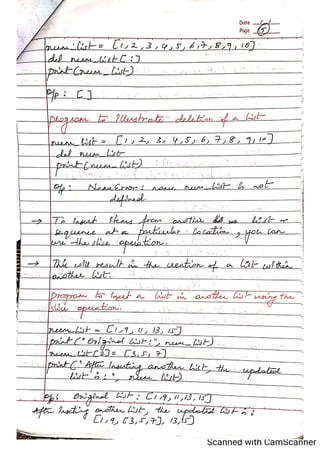 Date
Page 5
num_list = [1,2,3,4,5,6,7,8,9,10]
del num_list[:]
print(num_list)
o/p : []
program to Illustrate deletion of a list
num_list = [1,2,3,4,5,6,7,8,9,10]
del num_list
print(num_list)
o/p: NameError: name num_list is not
defined
→ To Insert Items from another list or
sequence at a particular location, you can
use the slice operation.
→ This will result in the creation of a list within
another list.
program to Insert a list in another list using the
slice operation.
num_list = [1,9,11,13,15]
print("Original List:", num_list)
num_list[2] = [3,5,7]
print("After Inserting another list, the updated
list is:", num_list)
o/p: Original list : [1,9,11,13,15]
After Inserting another list, the updated list is:
[1,9,[3,5,7],13,15]
Scanned with CamScanner